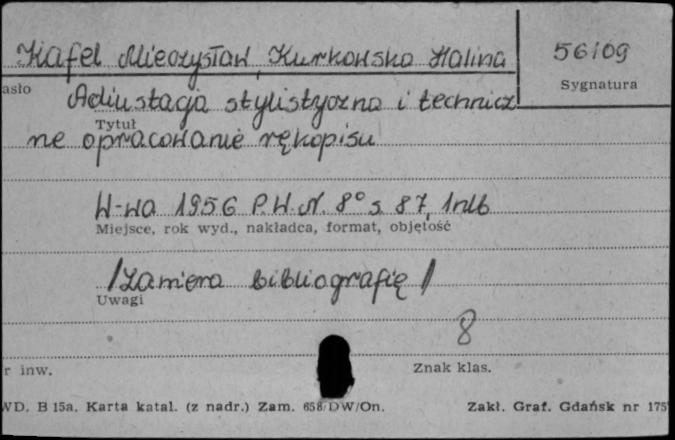 Kafel Mieczysław, Kurkowska Halina 56109
asło Sygnatura
Adiustacja stylistyczna i technicz
Tytuł
ne opracowanie rękopisu
W-wa 1956 P.W.N. 8° s. 87, 1nlb
Miejsce, rok wyd., nakładca, format, objętość
/Zawiera bibliografię/
Uwagi
8
r inw. Znak klas.
WD. B 15a. Karta katal. (z nadr.) Zam. 658/DW/On. Zakł. Graf. Gdańsk nr 175